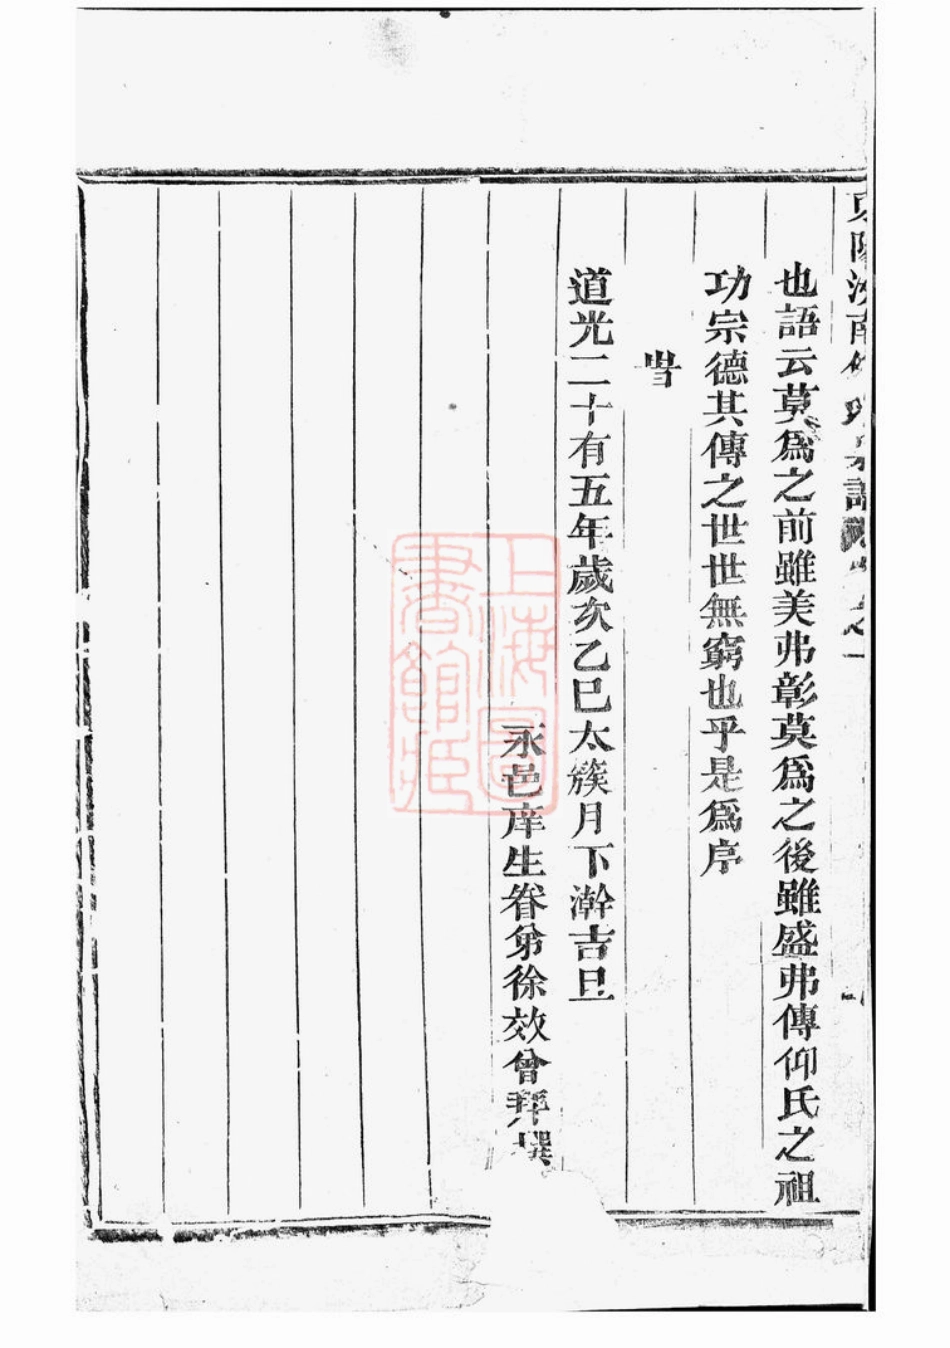 也語云莫爲之前雖美弗彰莫爲之後雖盛弗傳仰氏之祖
功宗德其傳之世世無窮也乎是爲序
旹
道光二十有五年歲次乙巳太簇月下澣吉旦
永邑庠生眷弟徐效曾拜撰
上海圖書館藏